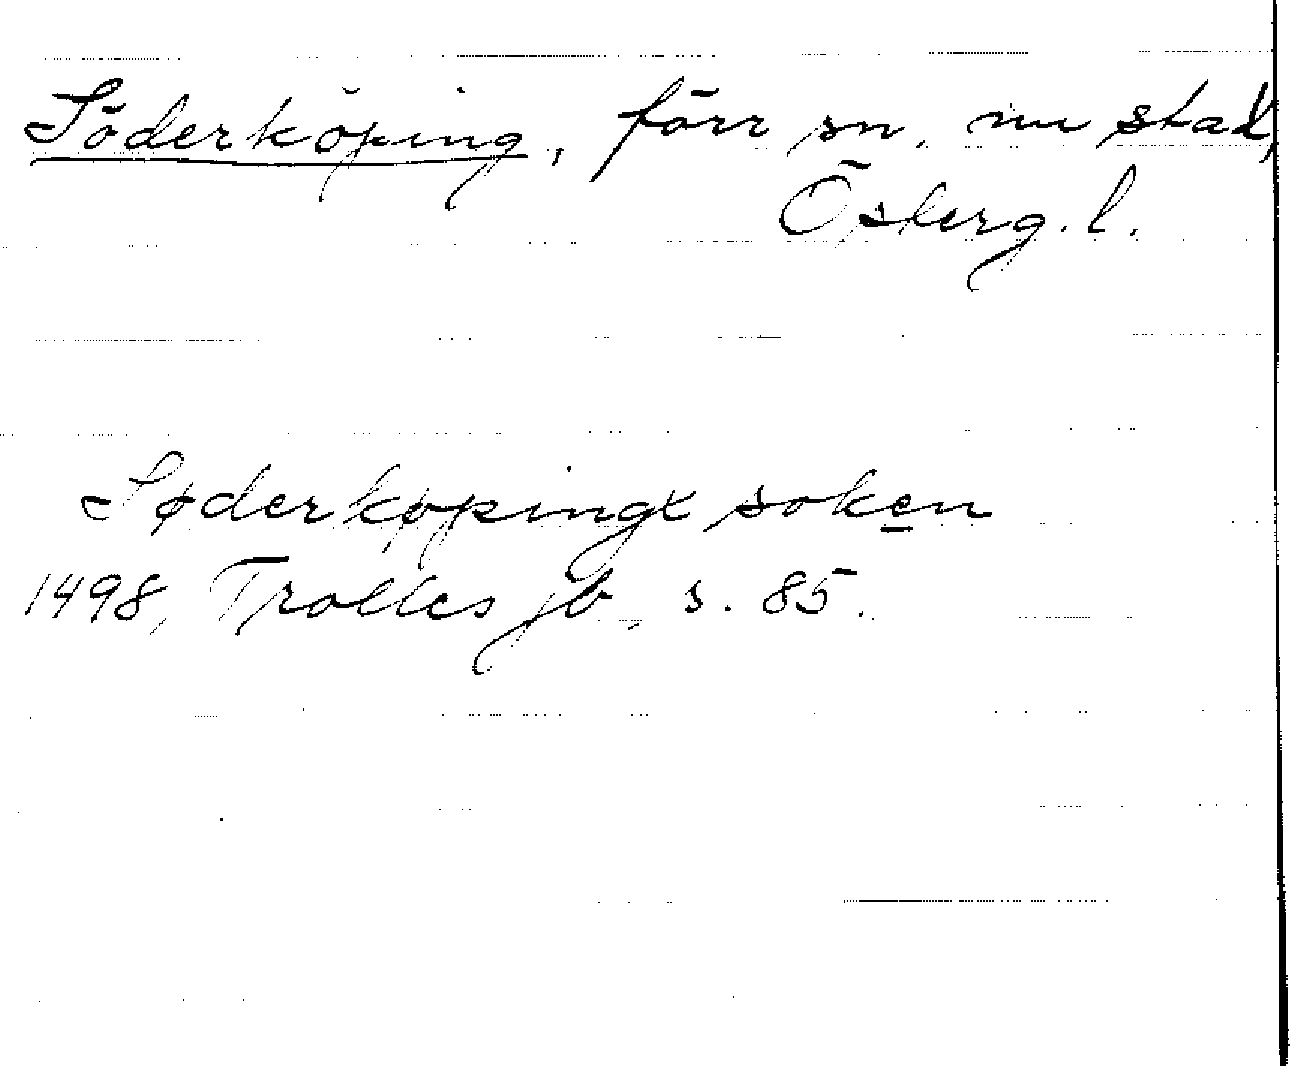 Söderköping, förr sn, nu stad,
Österg. l.
Søderkøpingx soken
1498, Trolles jb, s. 85.